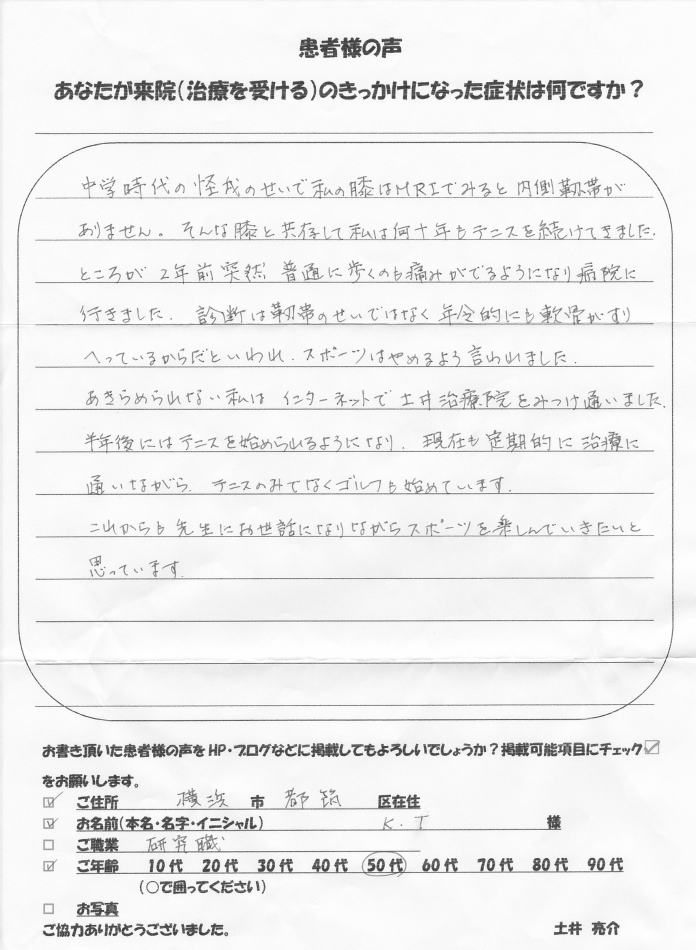 患者様の声
あなたが来院(治療を受ける)のきっかけになった症状は何ですか?
中学時代の怪我のせいで私の膝はMRIでみると内側靱帯が
ありません。そんな膝と共存して私は何十年もテニスを続けてきました.
ところが 2年前突然 普通に歩くのも痛みがでるようになり病院に
行きました. 診断は靱帯のせいではなく 年令的にも軟骨がすり
へっているからだといわれ. スポーツはやめるよう言われました.
あきらめられない私は インターネットで 土井治療院をみつけ通いました.
半年後にはテニスを始められるようになり. 現在も定期的に治療に
通いながら. テニスのみでなくゴルフも始めています.
これからも先生にお世話になりながらスポーツを楽しんでいきたいと
思っています.
お書き頂いた患者様の声をHP・ブログなどに掲載してもよろしいでしょうか?掲載可能項目にチェック☑
をお願いします。
☑ ご住所 横浜 市 都筑 区在住
☑ お名前(本名・名字・イニシャル) K.T 様
☐ ご職業 研究職
☑ ご年齢 10代 20代 30代 40代 50代 60代 70代 80代 90代
(○で囲ってください)
☐ お写真
ご協力ありがとうございました。 土井 亮介